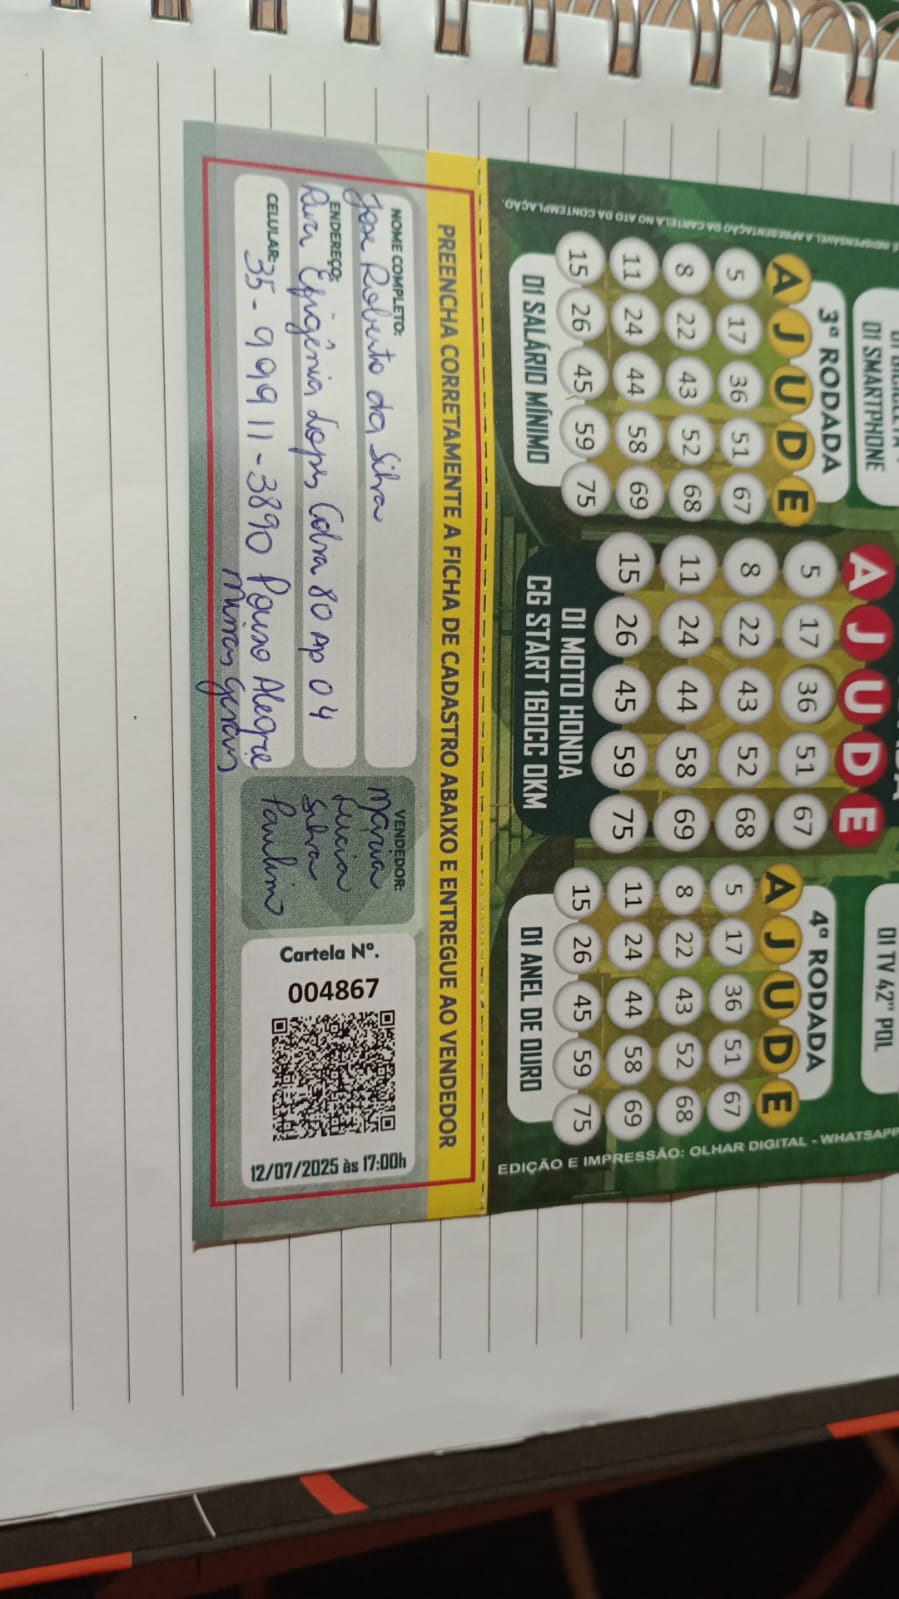 É INDISPENSÁVEL A APRESENTAÇÃO DA CARTELA NO ATO DA CONTEMPLAÇÃO.
01 SMARTPHONE
3ª RODADA
A J U D E
5 17 36 51 67
8 22 43 52 68
11 24 44 58 69
15 26 45 59 75
01 SALÁRIO MÍNIMO
A J U D E
5 17 36 51 67
8 22 43 52 68
11 24 44 58 69
15 26 45 59 75
01 MOTO HONDA
CG START 160CC 0KM
01 TV 42" POL
4ª RODADA
A J U D E
5 17 36 51 67
8 22 43 52 68
11 24 44 58 69
15 26 45 59 75
01 ANEL DE OURO
EDIÇÃO E IMPRESSÃO: OLHAR DIGITAL - WHATSAPP
PREENCHA CORRETAMENTE A FICHA DE CADASTRO ABAIXO E ENTREGUE AO VENDEDOR
NOME COMPLETO:
Jose Roberto da Silva
ENDEREÇO:
Rua Efigênia Lopes Cobra 80 Ap 04
CELULAR:
35-99911-3890 Pouso Alegre
Minas gerais
VENDEDOR:
Maria
Lucia
Silva
Paulino
Cartela Nº.
004867
12/07/2025 às 17:00h